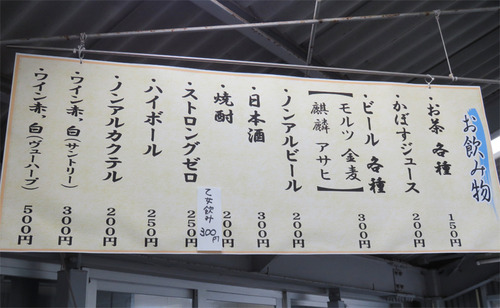 お飲み物
・お茶 各種 150円
・かぼすジュース 200円
・ビール 各種 300円
【モルツ 金麦
麒麟 アサヒ】
・ノンアルビール 200円
・日本酒 300円
・焼酎 200円
乙女飲み 300円
・ストロングゼロ 250円
・ハイボール 250円
・ノンアルカクテル 200円
・ワイン赤，白（サントリー） 300円
・ワイン赤，白（ヴューハーブ） 500円